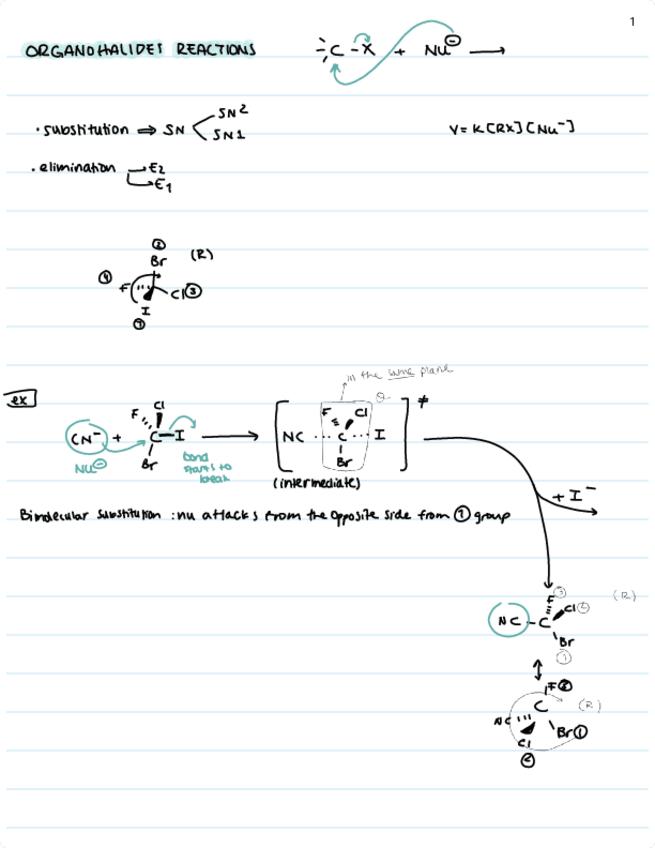 1
ORGANOHALIDES REACTIONS -C-X + Nu⊖ ⟶
• substitution ⇒ SN < SN2
SN1
V = K[RX][Nu⁻]
• elimination → E2
→ E1
② Br (R)
④ F Cl ③
I
①
in the same plane
ex
CN⁻ + F Cl C-I Br ⟶ [NC ··· C ··· I F Cl Br]⊖ ≠
Nu⊖ bond starts to break
(intermediate)
+ I⁻
Bimolecular substitution : nu attacks from the opposite side from ① group
F ③ (R)
NC - C Cl ②
Br
①
↕
F ③
C (R)
NC Br ①
Cl
②